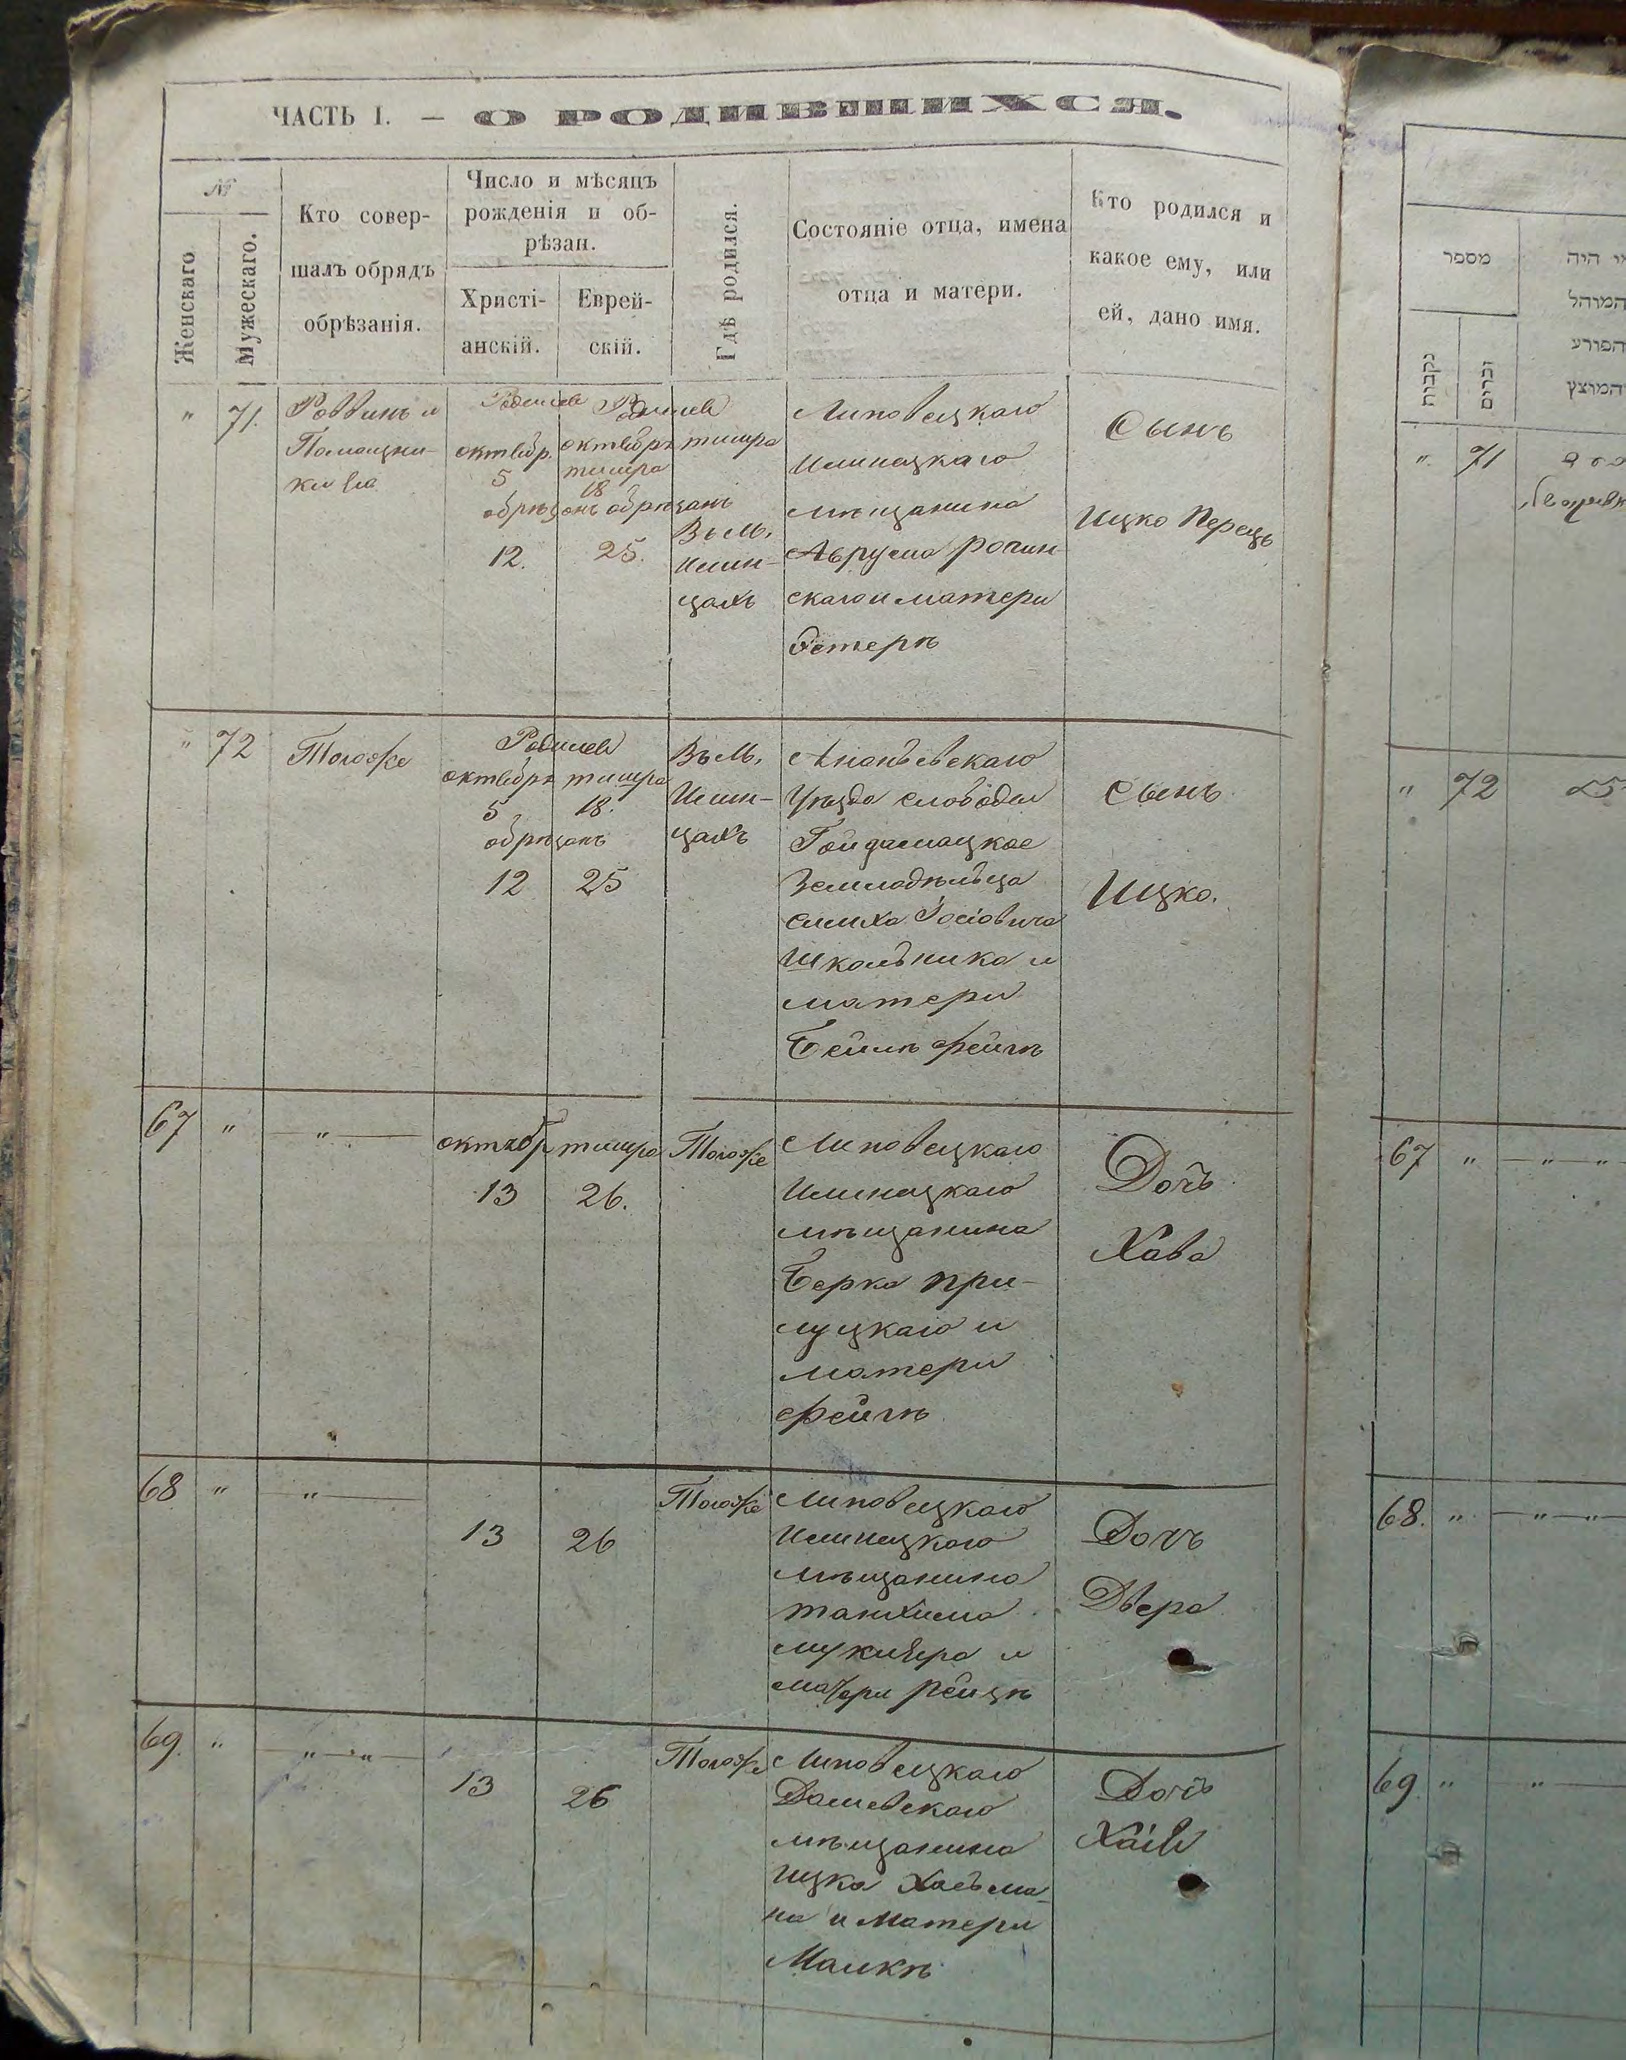 ЧАСТЬ I. — О РОДИВШИХСЯ.
№
Женскаго
Мужескаго.
Кто совер-
шалъ обрядъ
обрѣзанія.
Число и мѣсяцъ
рожденія и об-
рѣзан.
Христі-
анскій.
Еврей-
скій.
Гдѣ родился.
Состояніе отца, имена
отца и матери.
Кто родился и
какое ему, или
ей, дано имя.
" 71.
Раввинъ и
Помощни-
Родился Родился
октябр. октябръ тишра
5
тишра
18
обрѣзанъ обрѣзанъ
12. 25.
Въ М.
Илин-
цахъ
Липовецкаго
Илинецкаго
мѣщанина
Аврума Рогин-
скаго и матери
Эстеръ
Сынъ
Ицко Перецъ
" 72
Тогоже
Родился
октябръ тишра
5 18.
обрѣзанъ
12 25
Въ М.
Илин-
цахъ
Ананьевскаго
Уѣзда слободы
Гайдамацкое
Земледѣльца
Симха Іосіовича
Школьника и
матери
Бейлѣ Фейгѣ
Сынъ
Ицко.
67 " "
октябр тишра
13 26.
Тогоже
Липовецкаго
Илинецкаго
мѣщанина
Берка При-
луцкаго и
матери
Фейгѣ
Дочь
Хава
68 " "
13 26
Тогоже
Липовецкаго
Илинецкаго
мѣщанина
Танхима
и
матери Рейзѣ
Дочь
Двера
69. " " "
13 26
Тогоже
Липовецкаго
Дашевскаго
мѣщанина
Ицка
на и Матери
Малкѣ
Дочь
מספר
נקבות
זכרים
מי היה
המוהל
הפורע
והמוצץ
" 71
" 72
67 " " "
68. " " "
69. " "